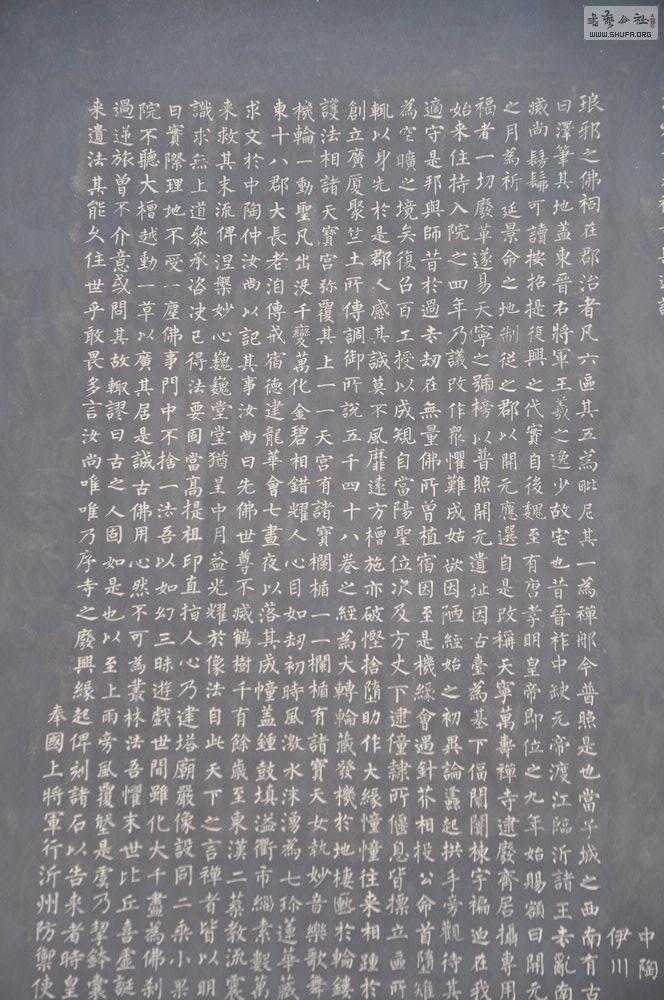 中陶
伊川
琅邪之佛祠在郡治者凡六區其五為毗尼其一為禪那今普照是也當子城之西南有古
曰澤筆其地蓋東晉右將軍王羲之逸少故宅也昔晉祚中缺元帝渡江臨沂諸王去亂南
滅尚髣髴可讀按招提復興之代實自後魏至有唐孝明皇帝即位之九年始賜額曰開元
之月為祈延景命之地制從之郡以開元應選自是改稱天寧萬壽禪寺逮廢齊居攝專用
福者一切廢革遂易天寧之號榜以普照開元遺址因古臺為基下偪闤闠棟宇褊迫在我
始來住持入院之四年乃議改作眾懼難成姑欲因陋經始之初異論蠭起拱手旁觀待其
適守是邦與師昔於過去劫在無量佛所曾植宿因至是機緣會遇針芥相投公命首墮雉
為空曠之境矣復召百工授以成規自當陽聖位次及方丈下逮僮隸所偃息皆標立區所
輒以身先於是郡人感其誠莫不風靡遠方檀施亦破慳捨墮助作大緣憧憧往來相踵於
創立廣厦聚竺土所傳調御所說五千四十八卷之經為大轉輪藏發機於地棲匭於輪鏤
護法相諸天寶宮弥覆其上一一天宮有諸寶欄楯一一欄楯有諸寶天女執妙音樂歌舞
機輪一動聖凡出沒千變萬化金碧相錯耀人心目如劫初時風激水沫湧為七珍蓮華藏
東十八郡大長老洎傳戒宿德建龍華會七晝夜以落其成幢蓋鍾鼓填溢衢市緇素數萬
求文於中陶仲汝尚以記其事汝尚曰先佛世尊不滅鶴樹千有餘歲至東漢二蔡教流震
来救其末流俾涅槃妙心巍巍堂堂猶星中月益光耀於像法自此天下之言禪者皆以明
識求無上道叅承咨决已得法要固當高提祖印直指人心乃建塔廟嚴像設同二乘小果
曰實際理地不受一塵佛事門中不捨一法吾以如幻三昧遊戲世間雖化大千盡為佛刹
院不聽大檀越動一草以廣其居是誠古佛用心然不可為叢林法吾懼末世比丘喜虛誕
過逆旅曾不介意或問其故輒謬曰古之人固如是也以至上雨旁風覆壓是虞乃挈鉢囊
来遺法其能久住世乎敢畏多言汝尚唯唯乃序寺之廢興緣起俾刻諸石以告来者時皇
奉國上將軍行沂州防禦使
書藝公社
WWW.SHUFA.ORG